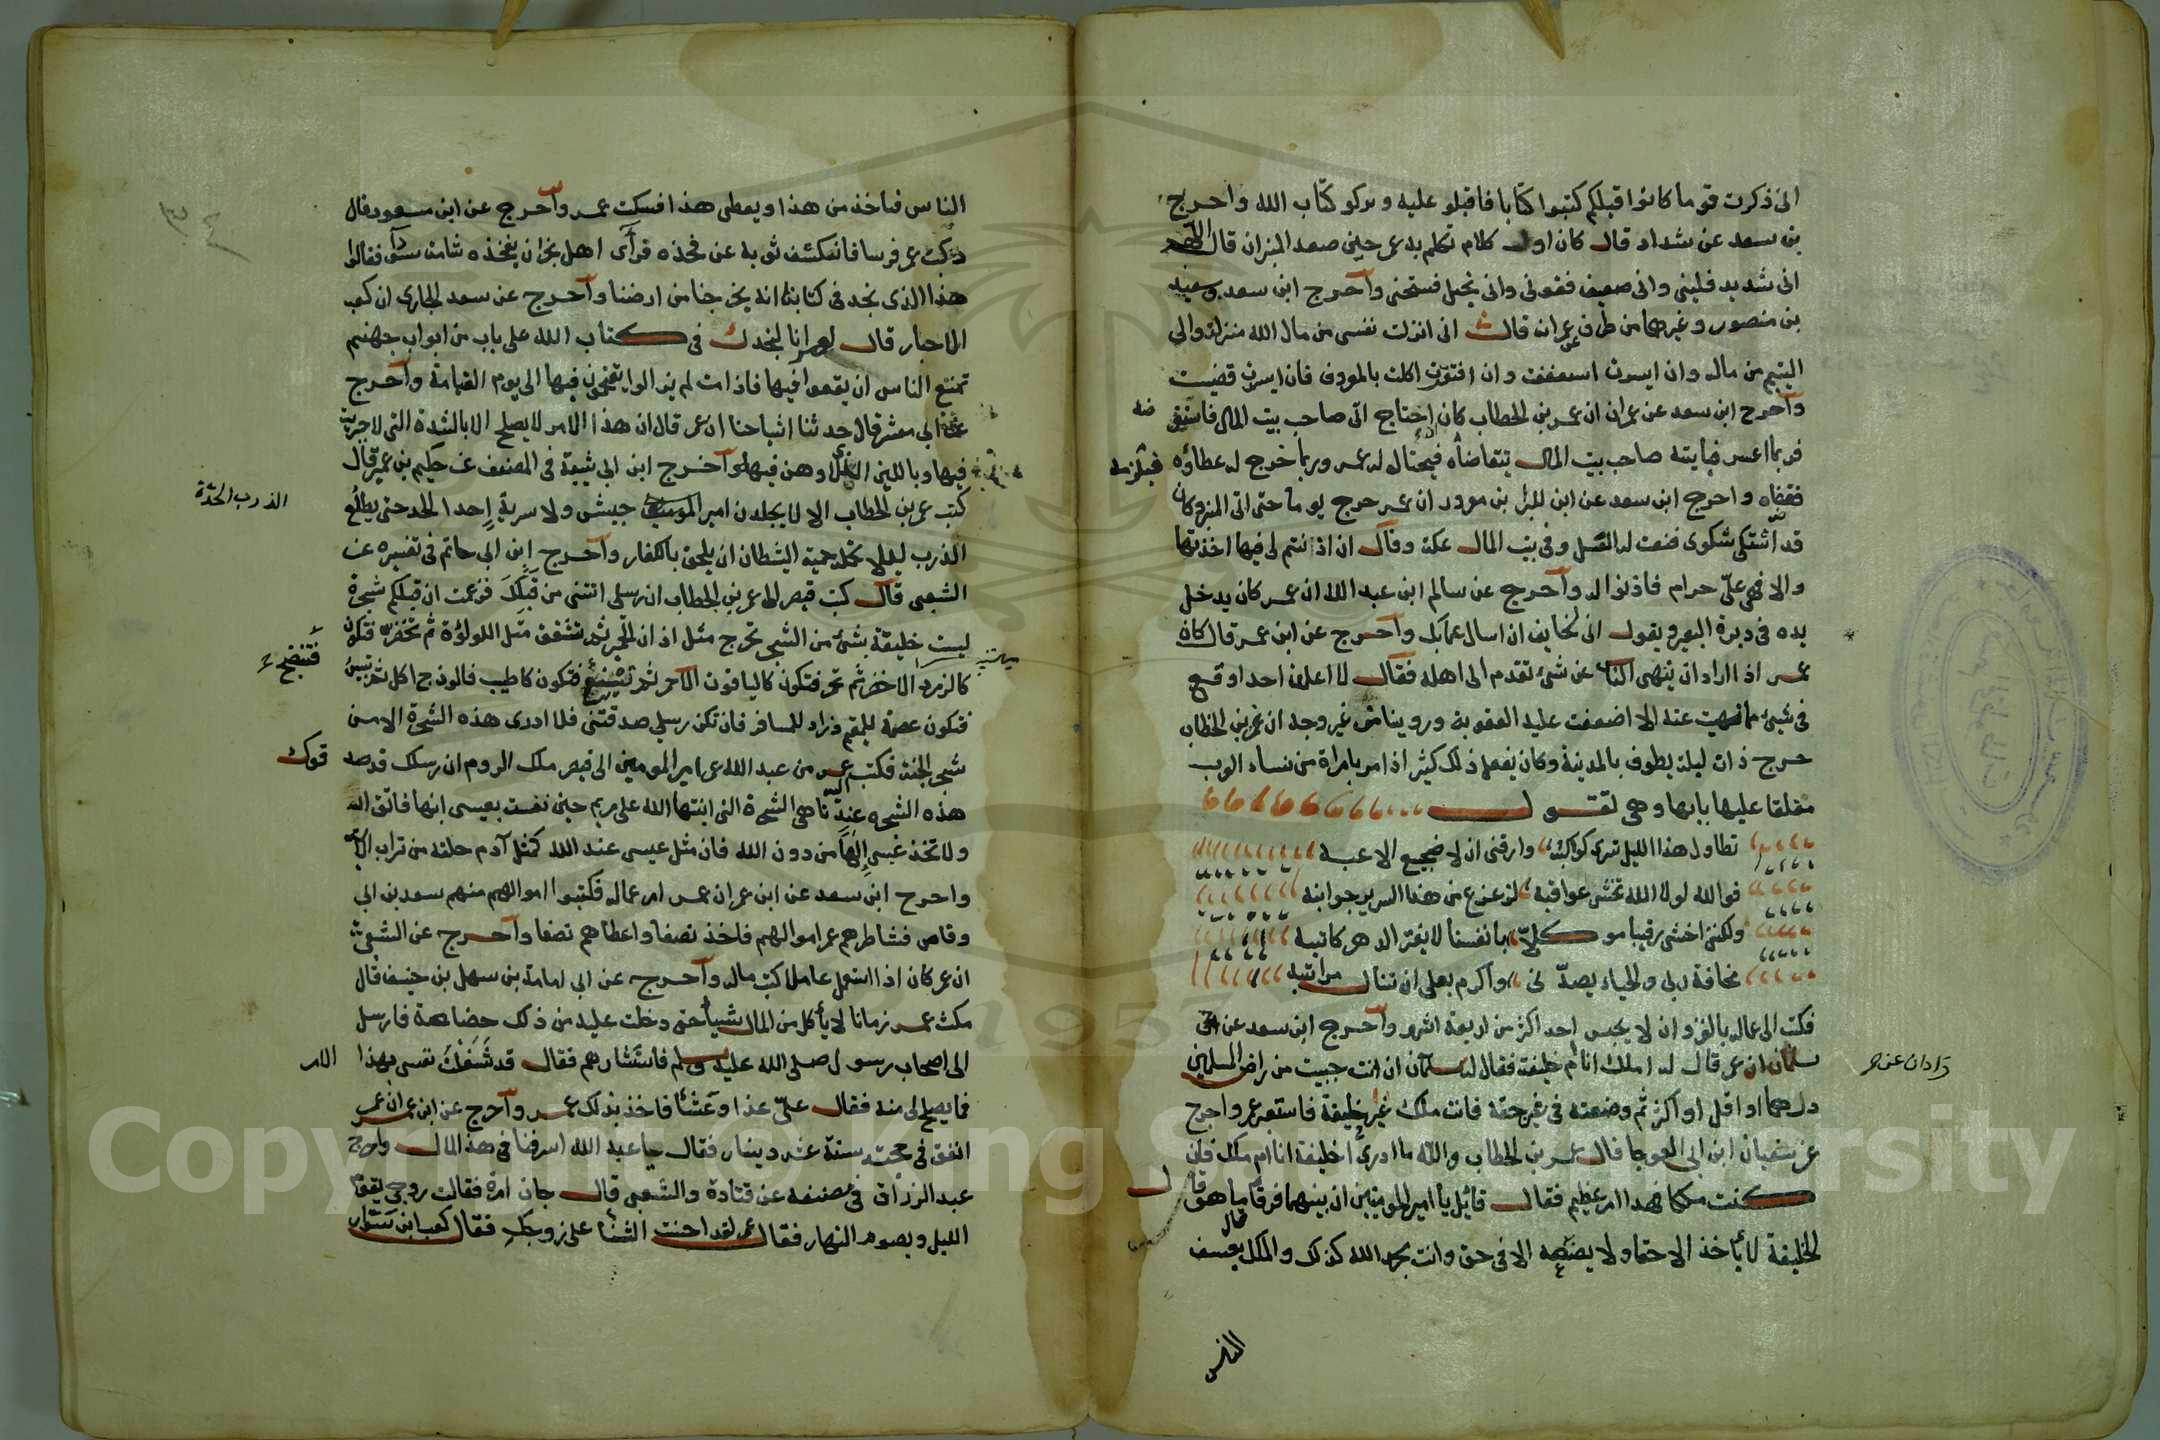 انى ذكرت قوما كانوا قبلكم كتبوا كتابا فاقبلو عليه وتركو كتاب الله واخرج
بن سعد عن شداد قال كان اول كلام تكلم به عمر حين صعد المنبر ان قال اللهم
انى شديد فلينى وانى ضعيف فقونى وانى بخيل فسخنى واخرج ابن سعد وسعيد
بن منصور وغيرهما من طرق عن عمر انه قال انى انزلت نفسى من مال الله منزلة والى
اليتيم من ماله وان ايسرت استعففت وان افتقرت اكلت بالمعروف فان ايسرت قضيت
واخرج ابن سعد عن عمران ان عمر بن الخطاب كان اذا احتاج اتى صاحب بيت المال فاستقر
ضه
فربما اعسر فياتيه صاحب بيت المال يتقاضاه فيحتال له عمر وربما خرج له عطاؤه
فيلزمه
فقضاه واخرج ابن سعد عن ابن للبرا بن معرور ان عمر خرج يوما حتى اتى المنبر وكان
قد اشتكى شكوى فنعت له العسل وفى بيت المال عكة وقال ان اذنتم لى فيها اخذتها
والا فهى على حرام فاذنوا له واخرج عن سالم ابن عبد الله ان عمر كان يدخل
يده فى دبرة البعير ويقول انى لخايف ان اسال عما بك واخرج عن ابن عمر قال كان
عمر اذا اراد ان ينهى الناس عن شىء تقدم الى اهله فقال لا اعلمن احدا وقع
فى شىء مما نهيت عنه الا اضعفت عليه العقوبة وروينا من غير وجه ان عمر بن الخطاب
خرج ذات ليلة يطوف بالمدينة وكان يفعل ذلك كثيرا اذ مر بامراة من نساء العرب
مغلقا عليها بابها وهى تقول
تطاول هذا الليل تسرى كواكبه وارقنى ان لا ضجيع الاعبه
فوالله لولا الله تخشى عواقبه لزعزع من هذا السرير جوانبه
ولكننى اخشى رقيبا موكلا بانفسنا لا يفتر الدهر كاتبه
مخافة ربى والحياء يصدنى واكرم بعلى ان تنال مراتبه
فكتب الى عماله بالغزو ان لا يحبس احد اكثر من اربعة اشهر واخرج ابن سعد عن
زادان عن
سلمان ان عمر قال له املك انا ام خليفة فقال له سلمان ان انت جبيت من ارض المسلمين
درهما او اقل او اكثر ثم وضعته فى غير حقه فانت ملك غير خليفة فاستعبر عمر واخرج
عن سفيان ابن ابى العوجا قال عمر بن الخطاب والله ما ادرى اخليفة انا ام ملك فان
كنت ملكا فهذا امر عظيم فقال قائل يا امير المومنين ان بينهما فرقا ما هو قال
الخليفة لا يأخذ الا حقا ولا يضعه الا فى حق وانت بحمد الله كذلك والملك يعسف
الناس
الناس فياخذ من هذا ويعطى هذا فسكت عمر واخرج عن ابن مسعود قال
ركب عمر فرسا فانكشف ثوبه عن فخذه فرأى اهل نجران بفخذه شامة سودآ فقالوا
هذا الذى نجد فى كتابنا انه يخرجنا من ارضنا واخرج عن سعد الجارى ان كعب
الاحبار قال لعمر انا لنجدك فى كتاب الله على باب من ابواب جهنم
تمنع الناس ان يقعوا فيها فاذا مت لم يزالوا يقتحمون فيها الى يوم القيامة واخرج
عن ابى معشر قال حدثنا اشياخنا ان عمر قال ان هذا الامر لا يصلح الا بالشدة التى لا جبرية
فيها وباللين الذى لا وهن فيه واخرج ابن ابى شيبة فى المصنف عن حكيم بن عمير قال
كتب عمر بن الخطاب الا لا يجلدن امير جيش ولا سرية احدا الحد حتى يطلع
الذرب الحدة
الدرب ليلا تحمله حمية الشيطان ان يلحق بالكفار واخرج ابن ابى حاتم فى تفسيره عن
الشعبى قال كتب قيصر الى عمر بن الخطاب ان رسلى اتتنى من قبلك فزعمت ان قبلكم شجرة
ليست خليقة بشىء من الشجر تخرج مثل اذان الحمير ثم تشقق مثل اللولؤة ثم تخضر فتكون
كالزمرد الاخضر ثم تحمر فتكون كالياقوت الاحمر ثم تينع فتكون كاطيب فالوذج اكل ثم تيبس
فتنضج
فتكون عصمة للمقيم وزاد للمسافر فان تكن رسلى صدقتنى فلا ادرى هذه الشجرة الا من
شجر الجنة فكتب عمر من عبد الله عمر امير المومنين الى قيصر ملك الروم ان رسلك قد صد
قوك
هذه الشجره عندنا هى الشجرة التى انبتها الله على مريم حين نفست بعيسى ابنها فاتق الله
ولا تتخذ عيسى الها من دون الله فان مثل عيسى عند الله كمثل آدم خلقه من تراب الآية
واخرج ابن سعد عن ابن عمر ان عمر امر عماله فكتبوا اموالهم منهم سعد بن ابى
وقاص فشاطرهم عمر اموالهم فاخذ نصفا واعطاهم نصفا واخرج عن الشعبى
ان عمر كان اذا استعمل عاملا كتب ماله واخرج عن ابى امامة بن سهل بن حنيف قال
مكث عمر زمانا لا يأكل من المال شيأ حتى دخلت عليه من ذلك خصاصة فارسل
الى اصحاب رسول صلى الله عليه وسلم فاستشارهم فقال قد شغلت نفسى بهذا
الامر
فما يصلح لى منه فقال على غذا وعشأ فاخذ بذلك عمر واخرج عن ابن عمر ان عمر
انفق فى حجته ستة عشر دينار فقال يا عبد الله اسرفنا فى هذا المال واخرج
عبد الرزاق فى مصنفه عن قتادة والشعبى قال جات امرة فقالت زوجى يقوم
الليل ويصوم النهار فقال عمر لقد احسنت الثناء على زوجك فقال كعب ابن سوار
Copyright © King Saud University
1957